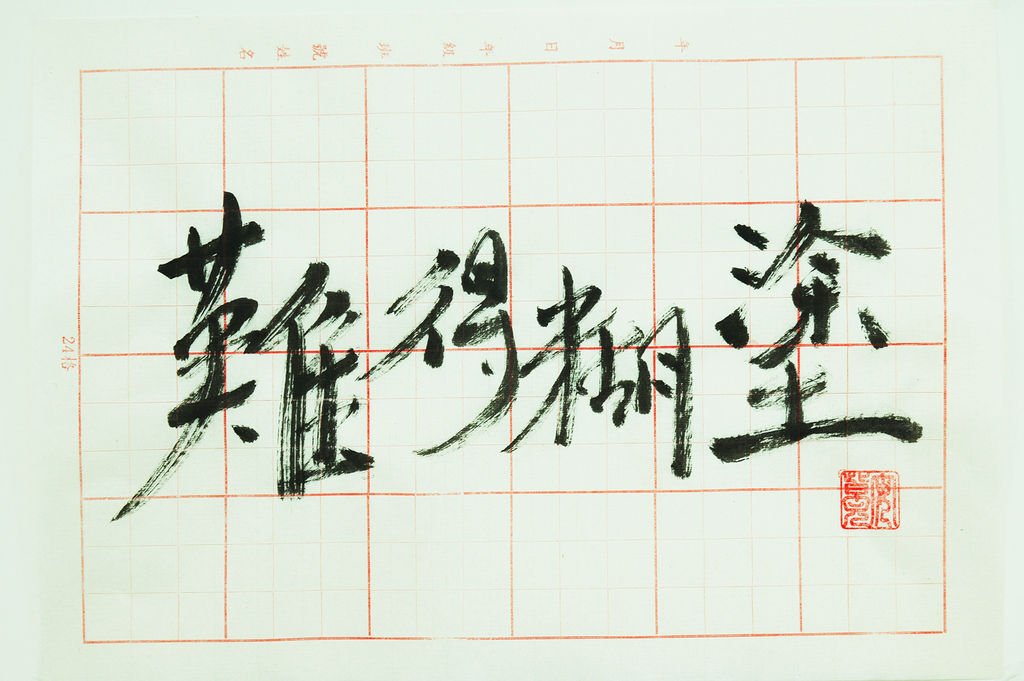 年 月 日 年 級 班 號 姓名
難得糊塗
24格